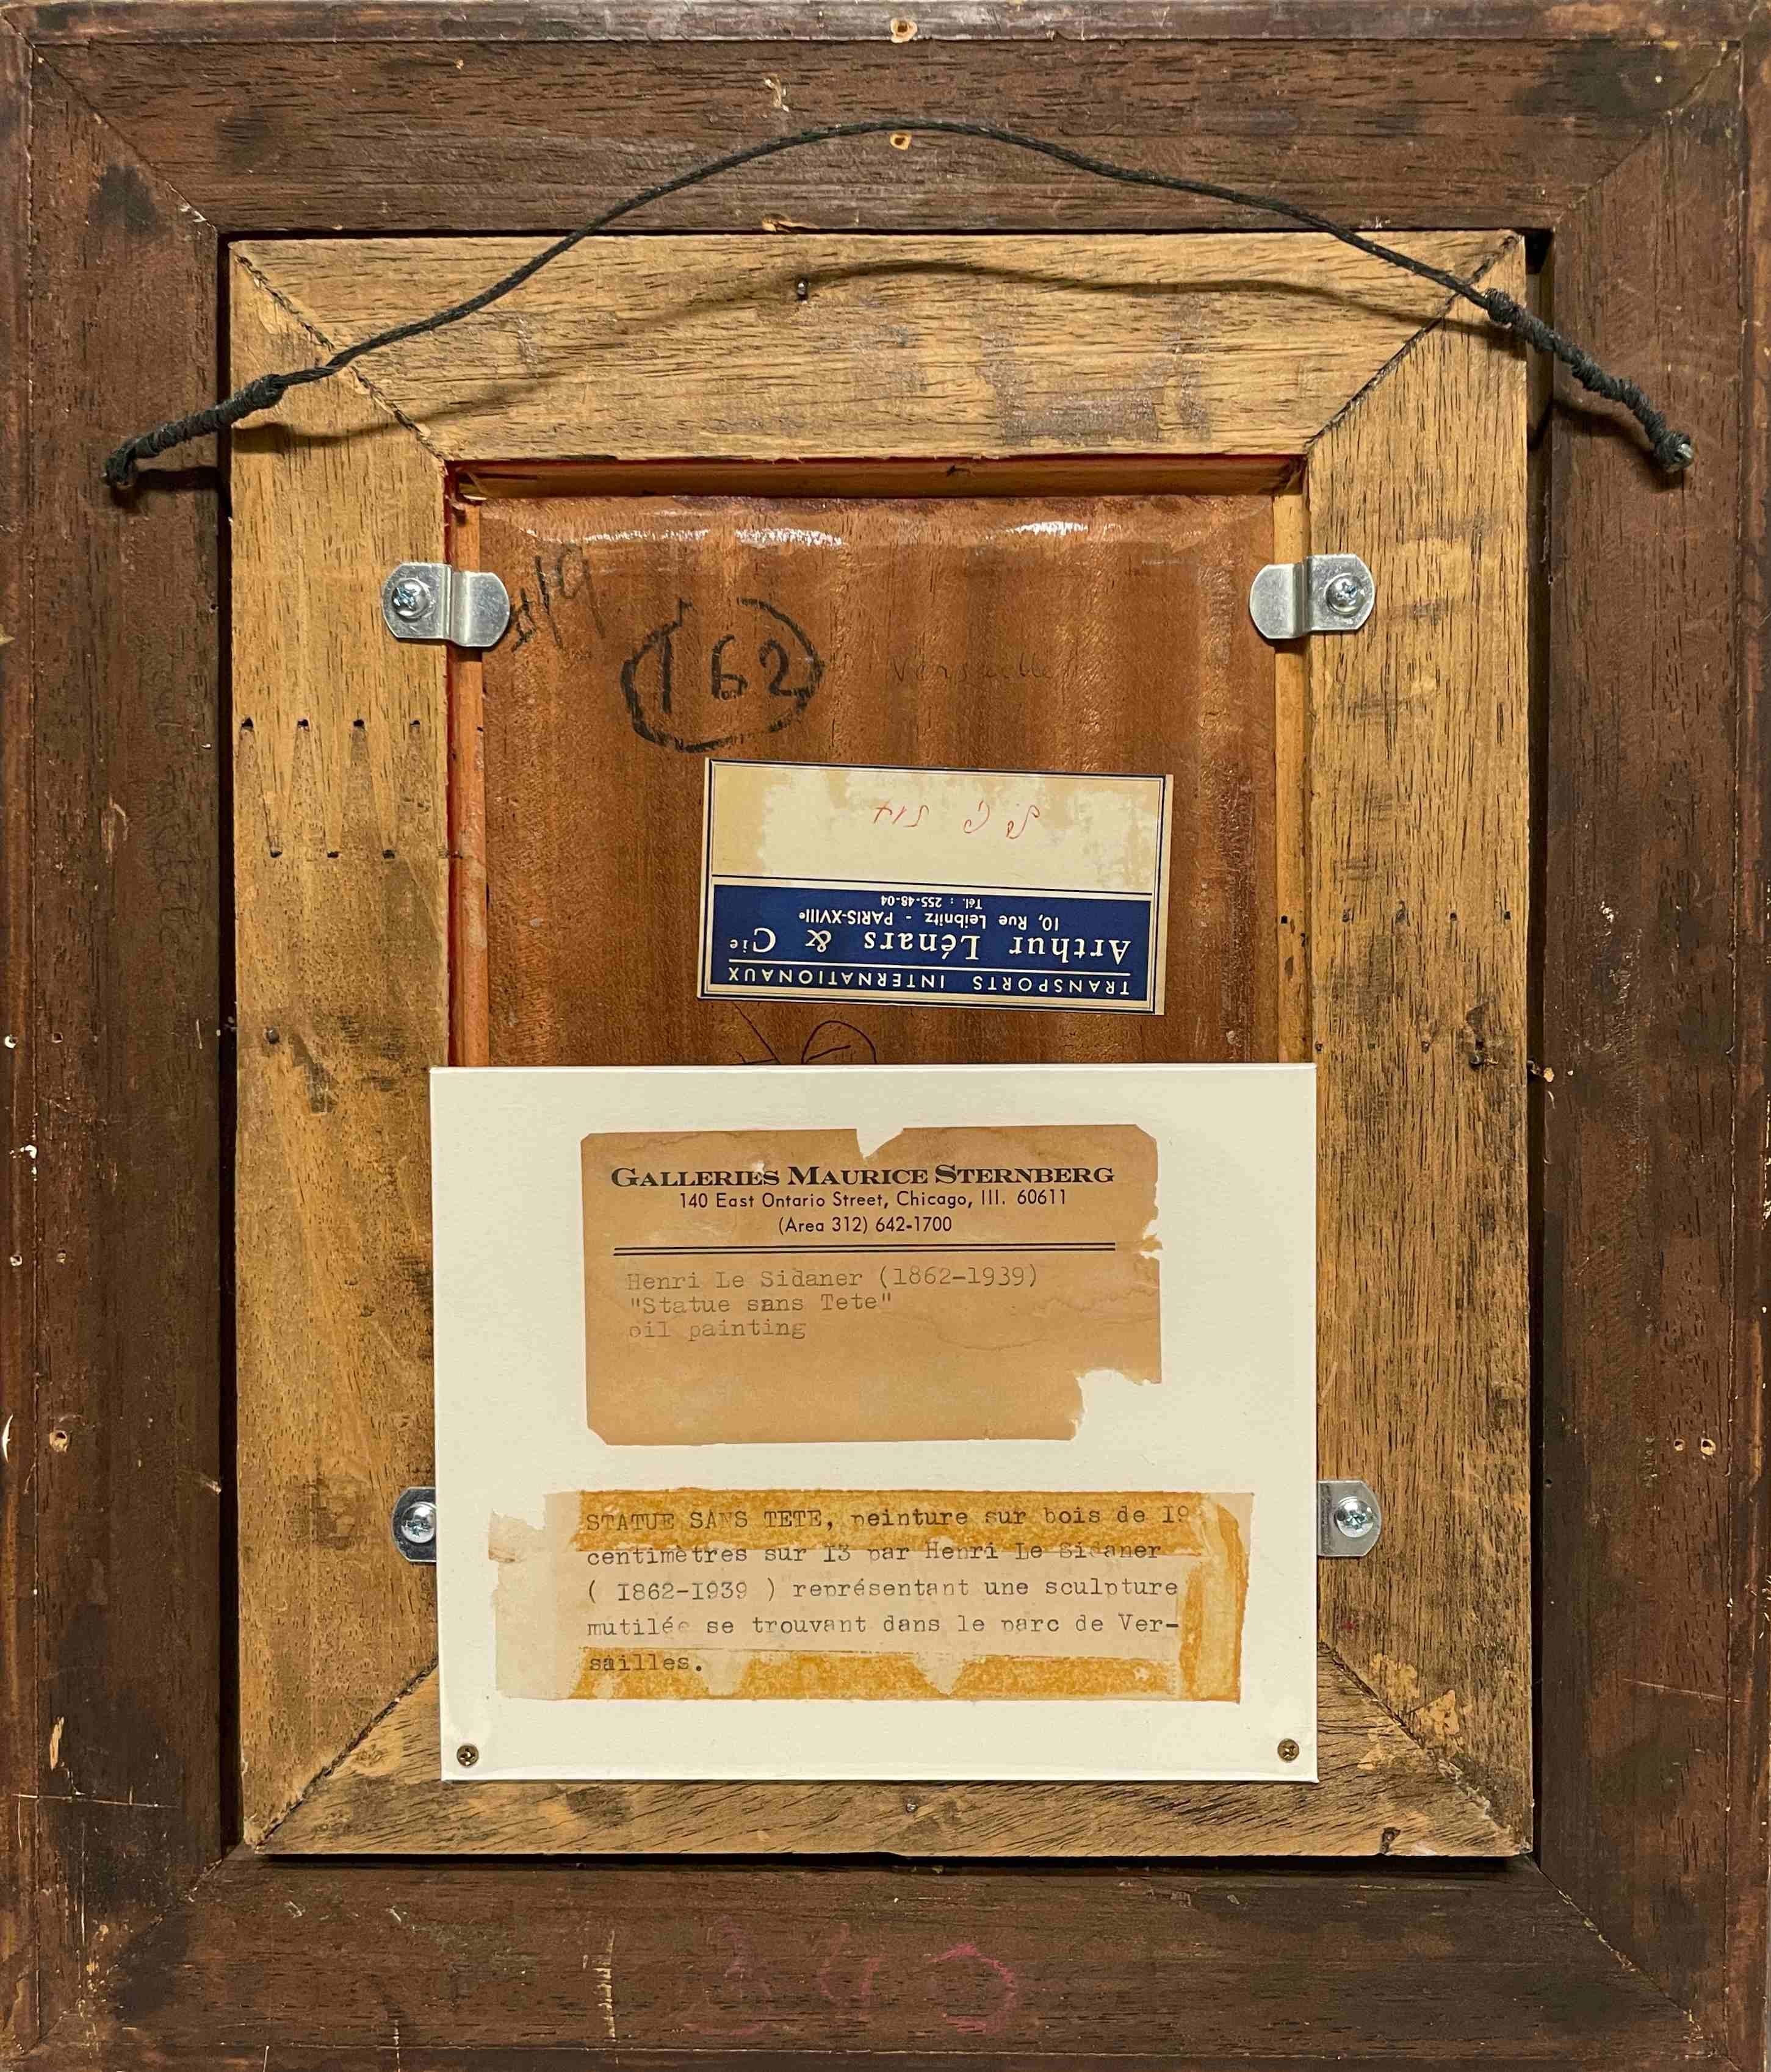 162
Versailles
TRANSPORTS INTERNATIONAUX
Arthur Lénars & Cie
10, Rue Leibnitz - PARIS-XVIIIe
Tél. : 255-48-04
GALLERIES MAURICE STERNBERG
140 East Ontario Street, Chicago, Ill. 60611
(Area 312) 642-1700
Henri Le Sidaner (1862-1939)
"Statue sans Tete"
oil painting
STATUE SANS TETE, peinture sur bois de I9
centimètres sur I3 par Henri Le Sidaner
( I862-I939 ) représentant une sculpture
mutilée se trouvant dans le parc de Ver-
sailles.